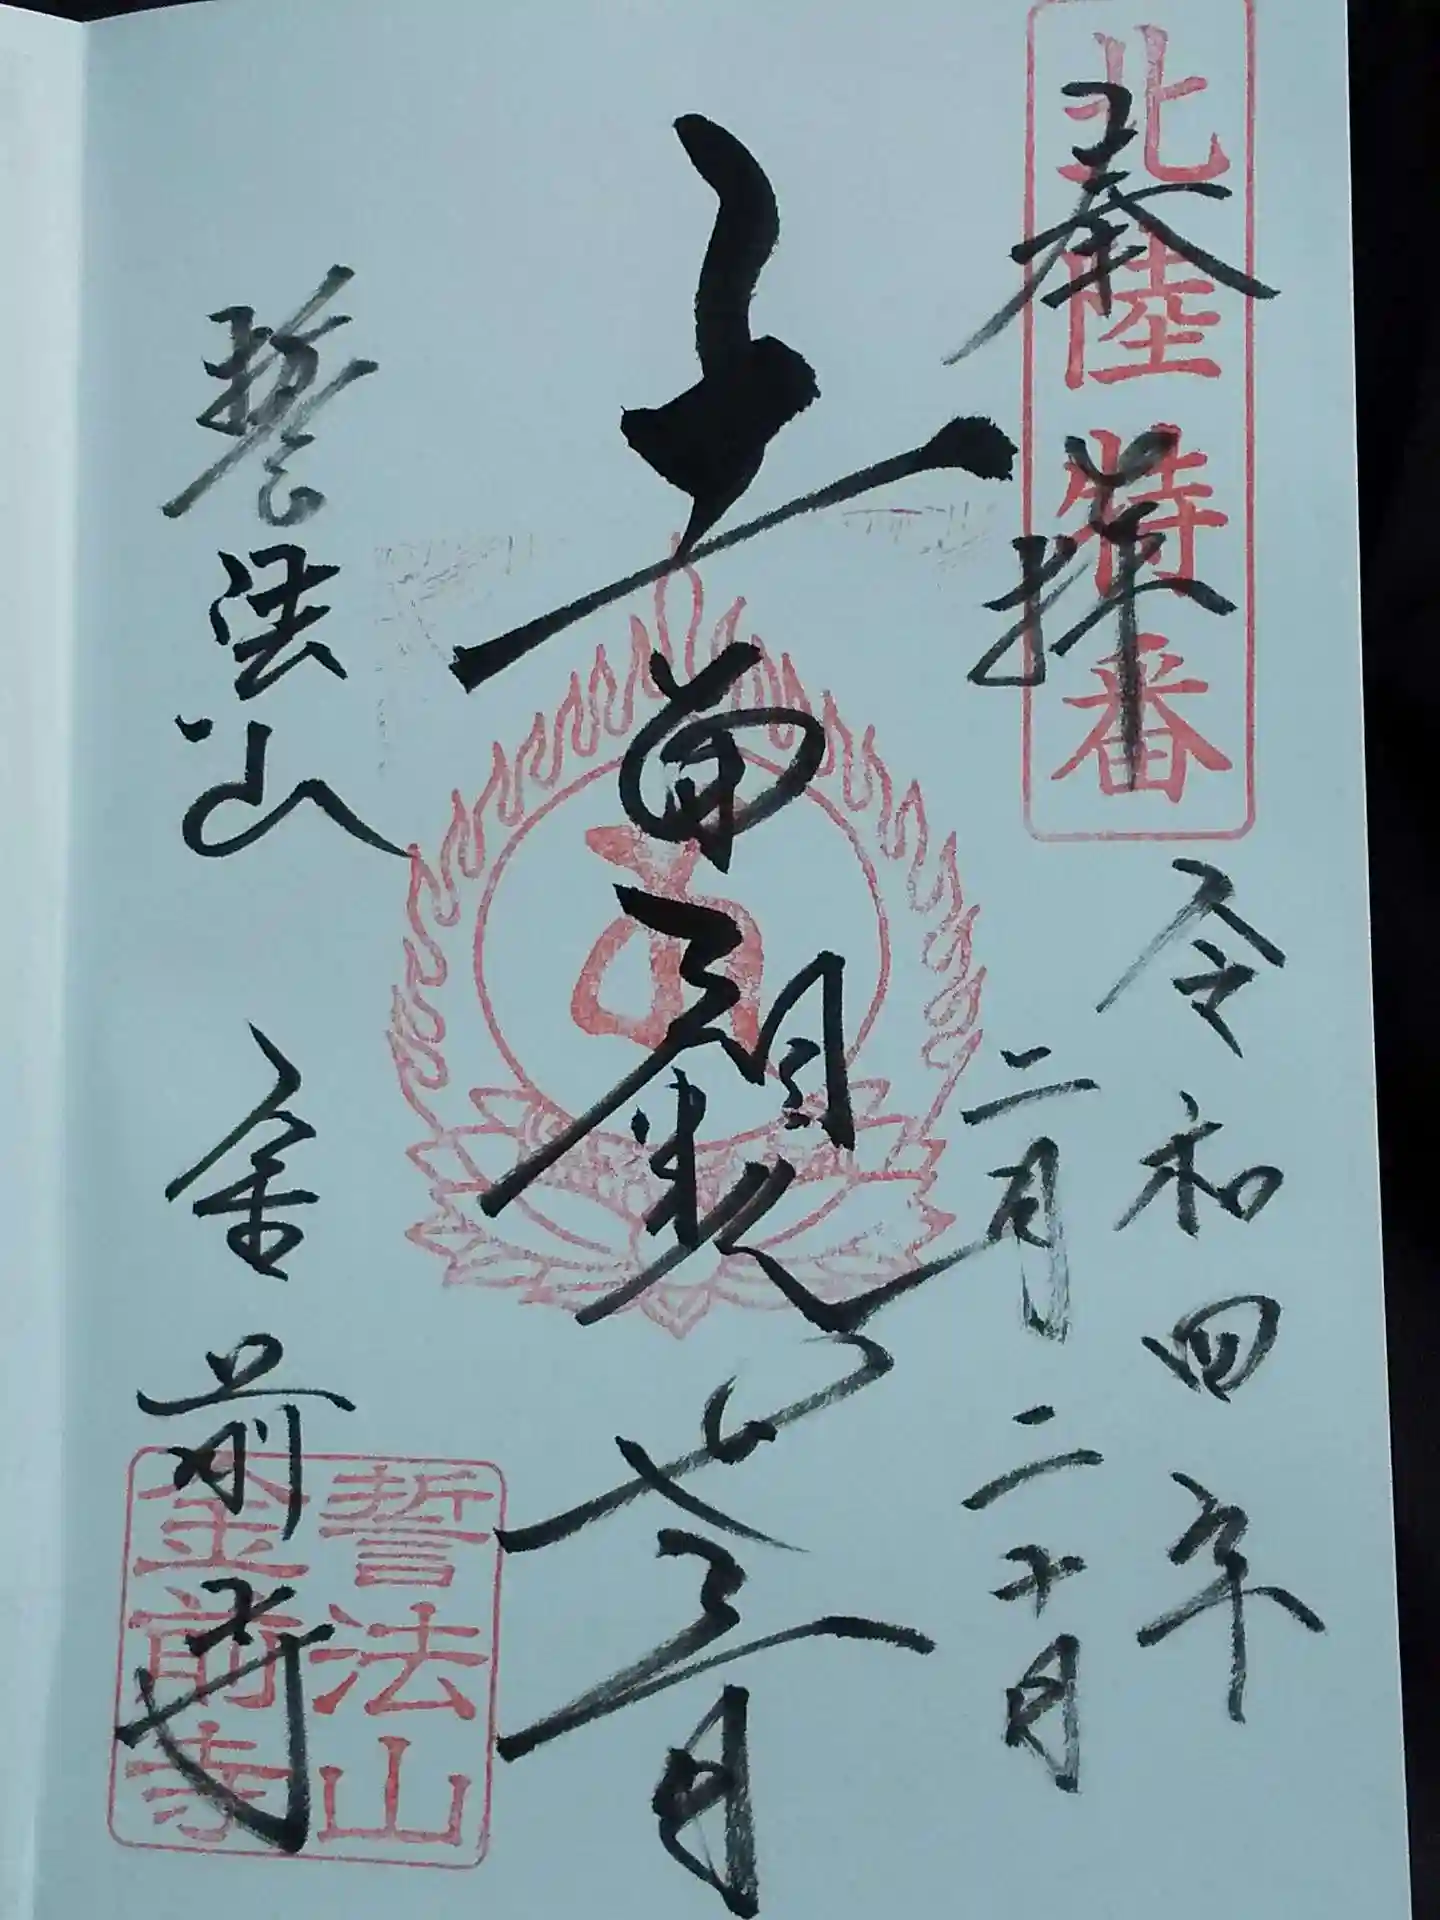 北陸特番
奉拝
令和四年
二月二十日
十一面観世音
誓法山 金前寺
誓法山
金前寺